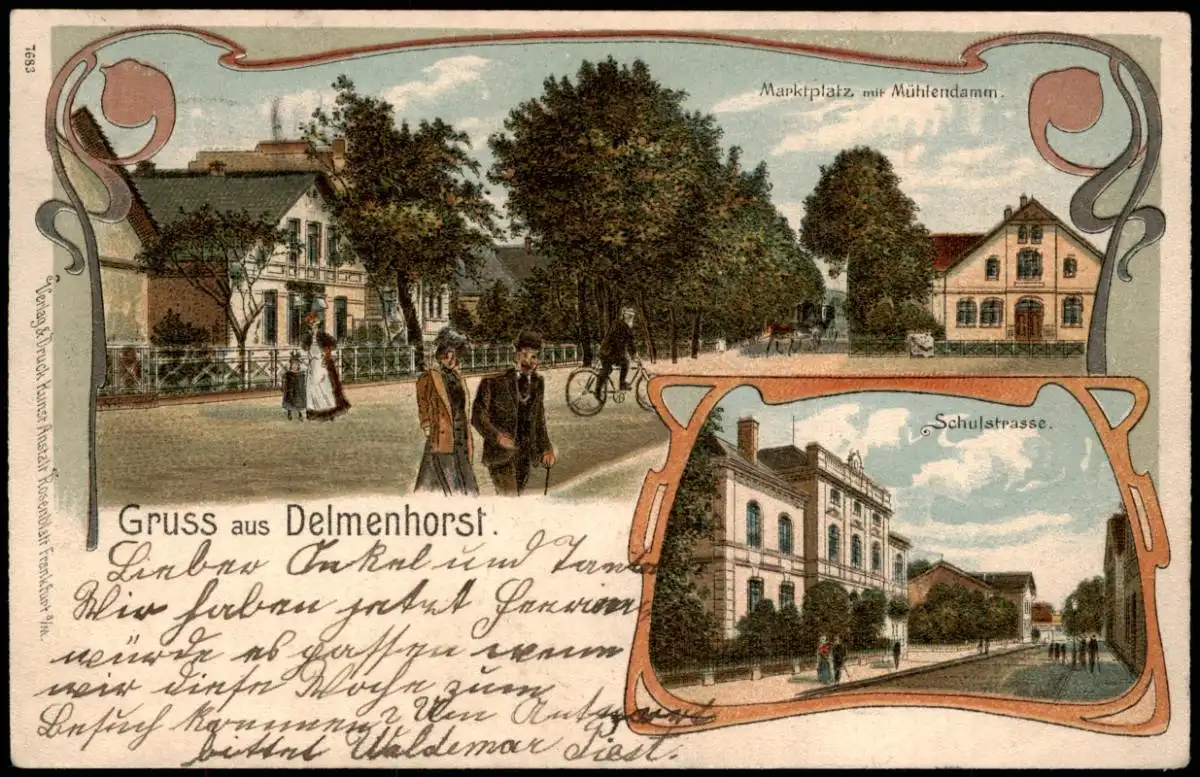 7683
Marktplatz mit Mühlendamm.
Schulstrasse.
Verlag & Druck Kunst Anstalt Rosenblatt Frankfurt a/M.
Gruss aus Delmenhorst.
Lieber Onkel und Tante
Wir haben jetzt Feerien
würde es passen wenn
wir diese Woche zum
Besuch kommen? Um Antwort
bittet Waldemar